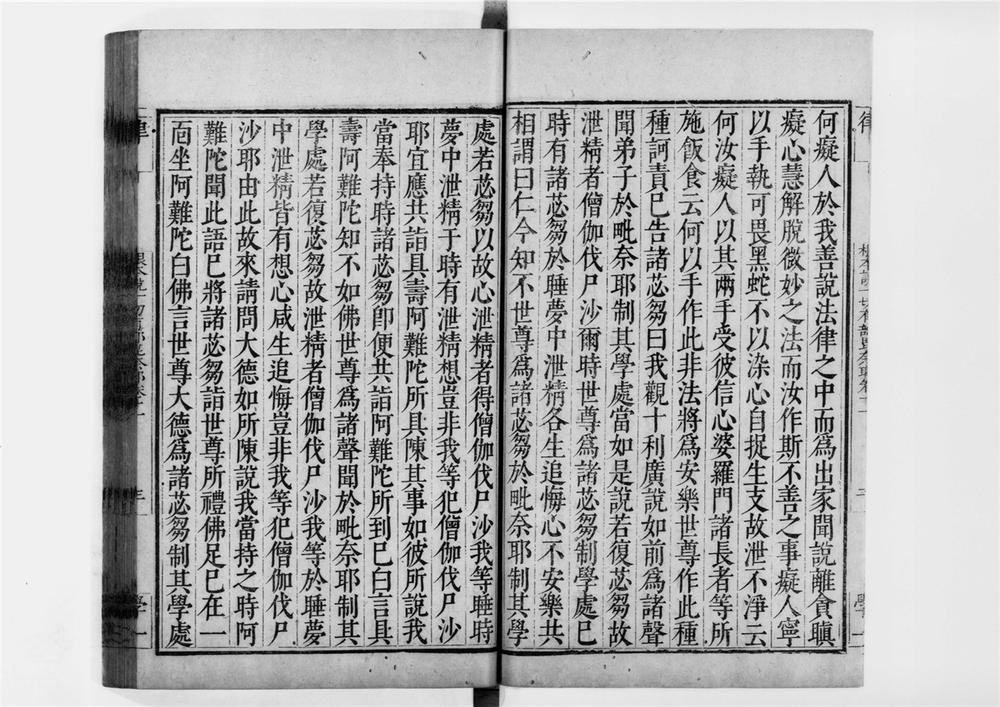 何癡人於我善說法律之中而爲出家聞說離貪瞋
癡心慧解脫微妙之法而汝作斯不善之事癡人寧
以手執可畏黑蛇不以染心自捉生支故泄不淨云
何汝癡人以其兩手受彼信心婆羅門諸長者等所
施飯食云何以手作此非法將爲安樂世尊作此種
種訶責已告諸苾芻曰我觀十利廣說如前爲諸聲
聞弟子於毗奈耶制其學處當如是說若復苾芻故
泄精者僧伽伐尸沙爾時世尊爲諸苾芻制學處已
時有諸苾芻於睡夢中泄精各生追悔心不安樂共
相謂曰仁今知不世尊爲諸苾芻於毗奈耶制其學
處若苾芻以故心泄精者得僧伽伐尸沙我等睡時
夢中泄精于時有泄精想豈非我等犯僧伽伐尸沙
耶宜應共詣具壽阿難陀所具陳其事如彼所說我
當奉持時諸苾芻卽便共詣阿難陀所到已白言具
壽阿難陀知不如佛世尊爲諸聲聞於毗奈耶制其
學處若復苾芻故泄精者僧伽伐尸沙我等於睡夢
中泄精皆有想心咸生追悔豈非我等犯僧伽伐尸
沙耶由此故來請問大德如所陳說我當持之時阿
難陀聞此語已將諸苾芻詣世尊所禮佛足已在一
面坐阿難陀白佛言世尊大德爲諸苾芻制其學處